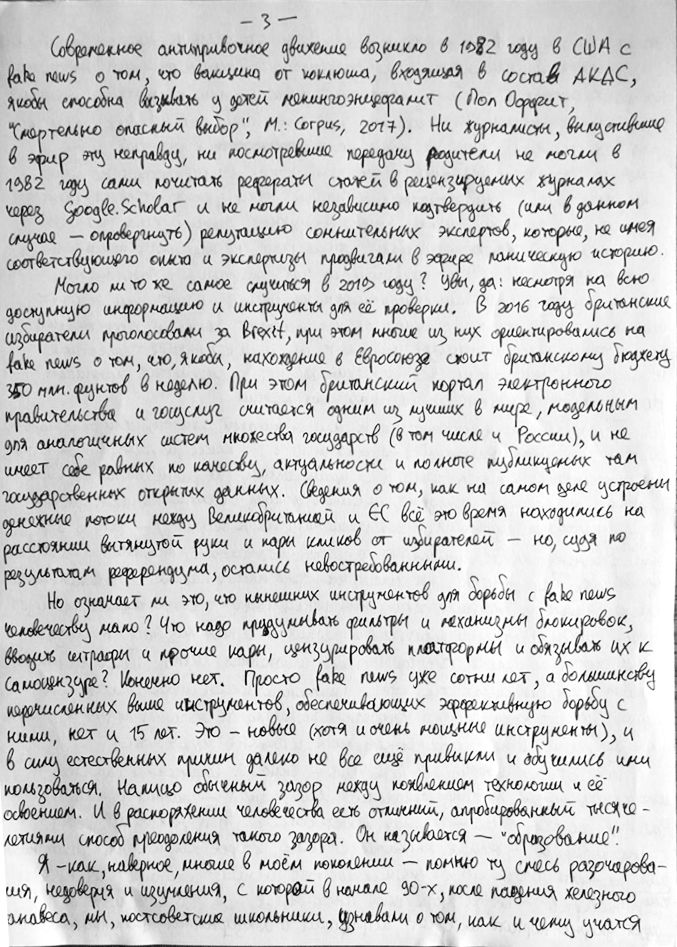 – 3 –
Современное антипрививочное движение возникло в 1982 году в США с
fake news о том, что вакцина от коклюша, входящая в состав АКДС,
якобы способна вызывать у детей менингоэнцефалит (Пол Оффит,
"Смертельно опасный выбор", М.: Corpus, 2017). Ни журналисты, выпустившие
в эфир эту неправду, ни посмотревшие передачу родители не могли в
1982 году сами почитать рефераты статей в рецензируемых журналах
через Google.Scholar и не могли независимо подтвердить (или в данном
случае – опровергнуть) репутацию сомнительных экспертов, которые, не имея
соответствующего опыта и экспертизы продвигали в эфире паническую историю.
Могло ли то же самое случиться в 2019 году? Увы, да: несмотря на всю
доступную информацию и инструменты для её проверки. В 2016 году британские
избиратели проголосовали за Brexit, при этом многие из них ориентировались на
fake news о том, что, якобы, нахождение в Евросоюзе стоит британскому бюджету
350 млн. фунтов в неделю. При этом британский портал электронного
правительства и госуслуг считается одним из лучших в мире, модельным
для аналогичных систем множества государств (в том числе и России), и не
имеет себе равных по качеству, актуальности и полноте публикуемых там
государственных открытых данных. Сведения о том, как на самом деле устроены
денежные потоки между Великобританией и ЕС всё это время находились на
расстоянии вытянутой руки и пары кликов от избирателей – но, судя по
результатам референдума, остались невостребованными.
Но означает ли это, что нынешних инструментов для борьбы с fake news
человечеству мало? Что надо придумывать фильтры и механизмы блокировок,
вводить штрафы и прочие кары, цензурировать платформы и обязывать их к
самоцензуре? Конечно нет. Просто fake news уже сотни лет, а большинству
перечисленных выше инструментов, обеспечивающих эффективную борьбу с
ними, нет и 15 лет. Это – новые (хотя и очень мощные инструменты), и
в силу естественных причин далеко не все ещё привыкли и обучились ими
пользоваться. Налицо обычный зазор между появлением технологии и её
освоением. И в распоряжении человечества есть отличный, апробированный тысяче-
летиями способ преодоления такого зазора. Он называется – "образование".
Я – как, наверное, многие в моём поколении – помню ту смесь разочарова-
ния, недоверия и изумления, с которой в начале 90-х, после падения железного
занавеса, мы, постсоветские школьники, узнавали о том, как и чему учатся